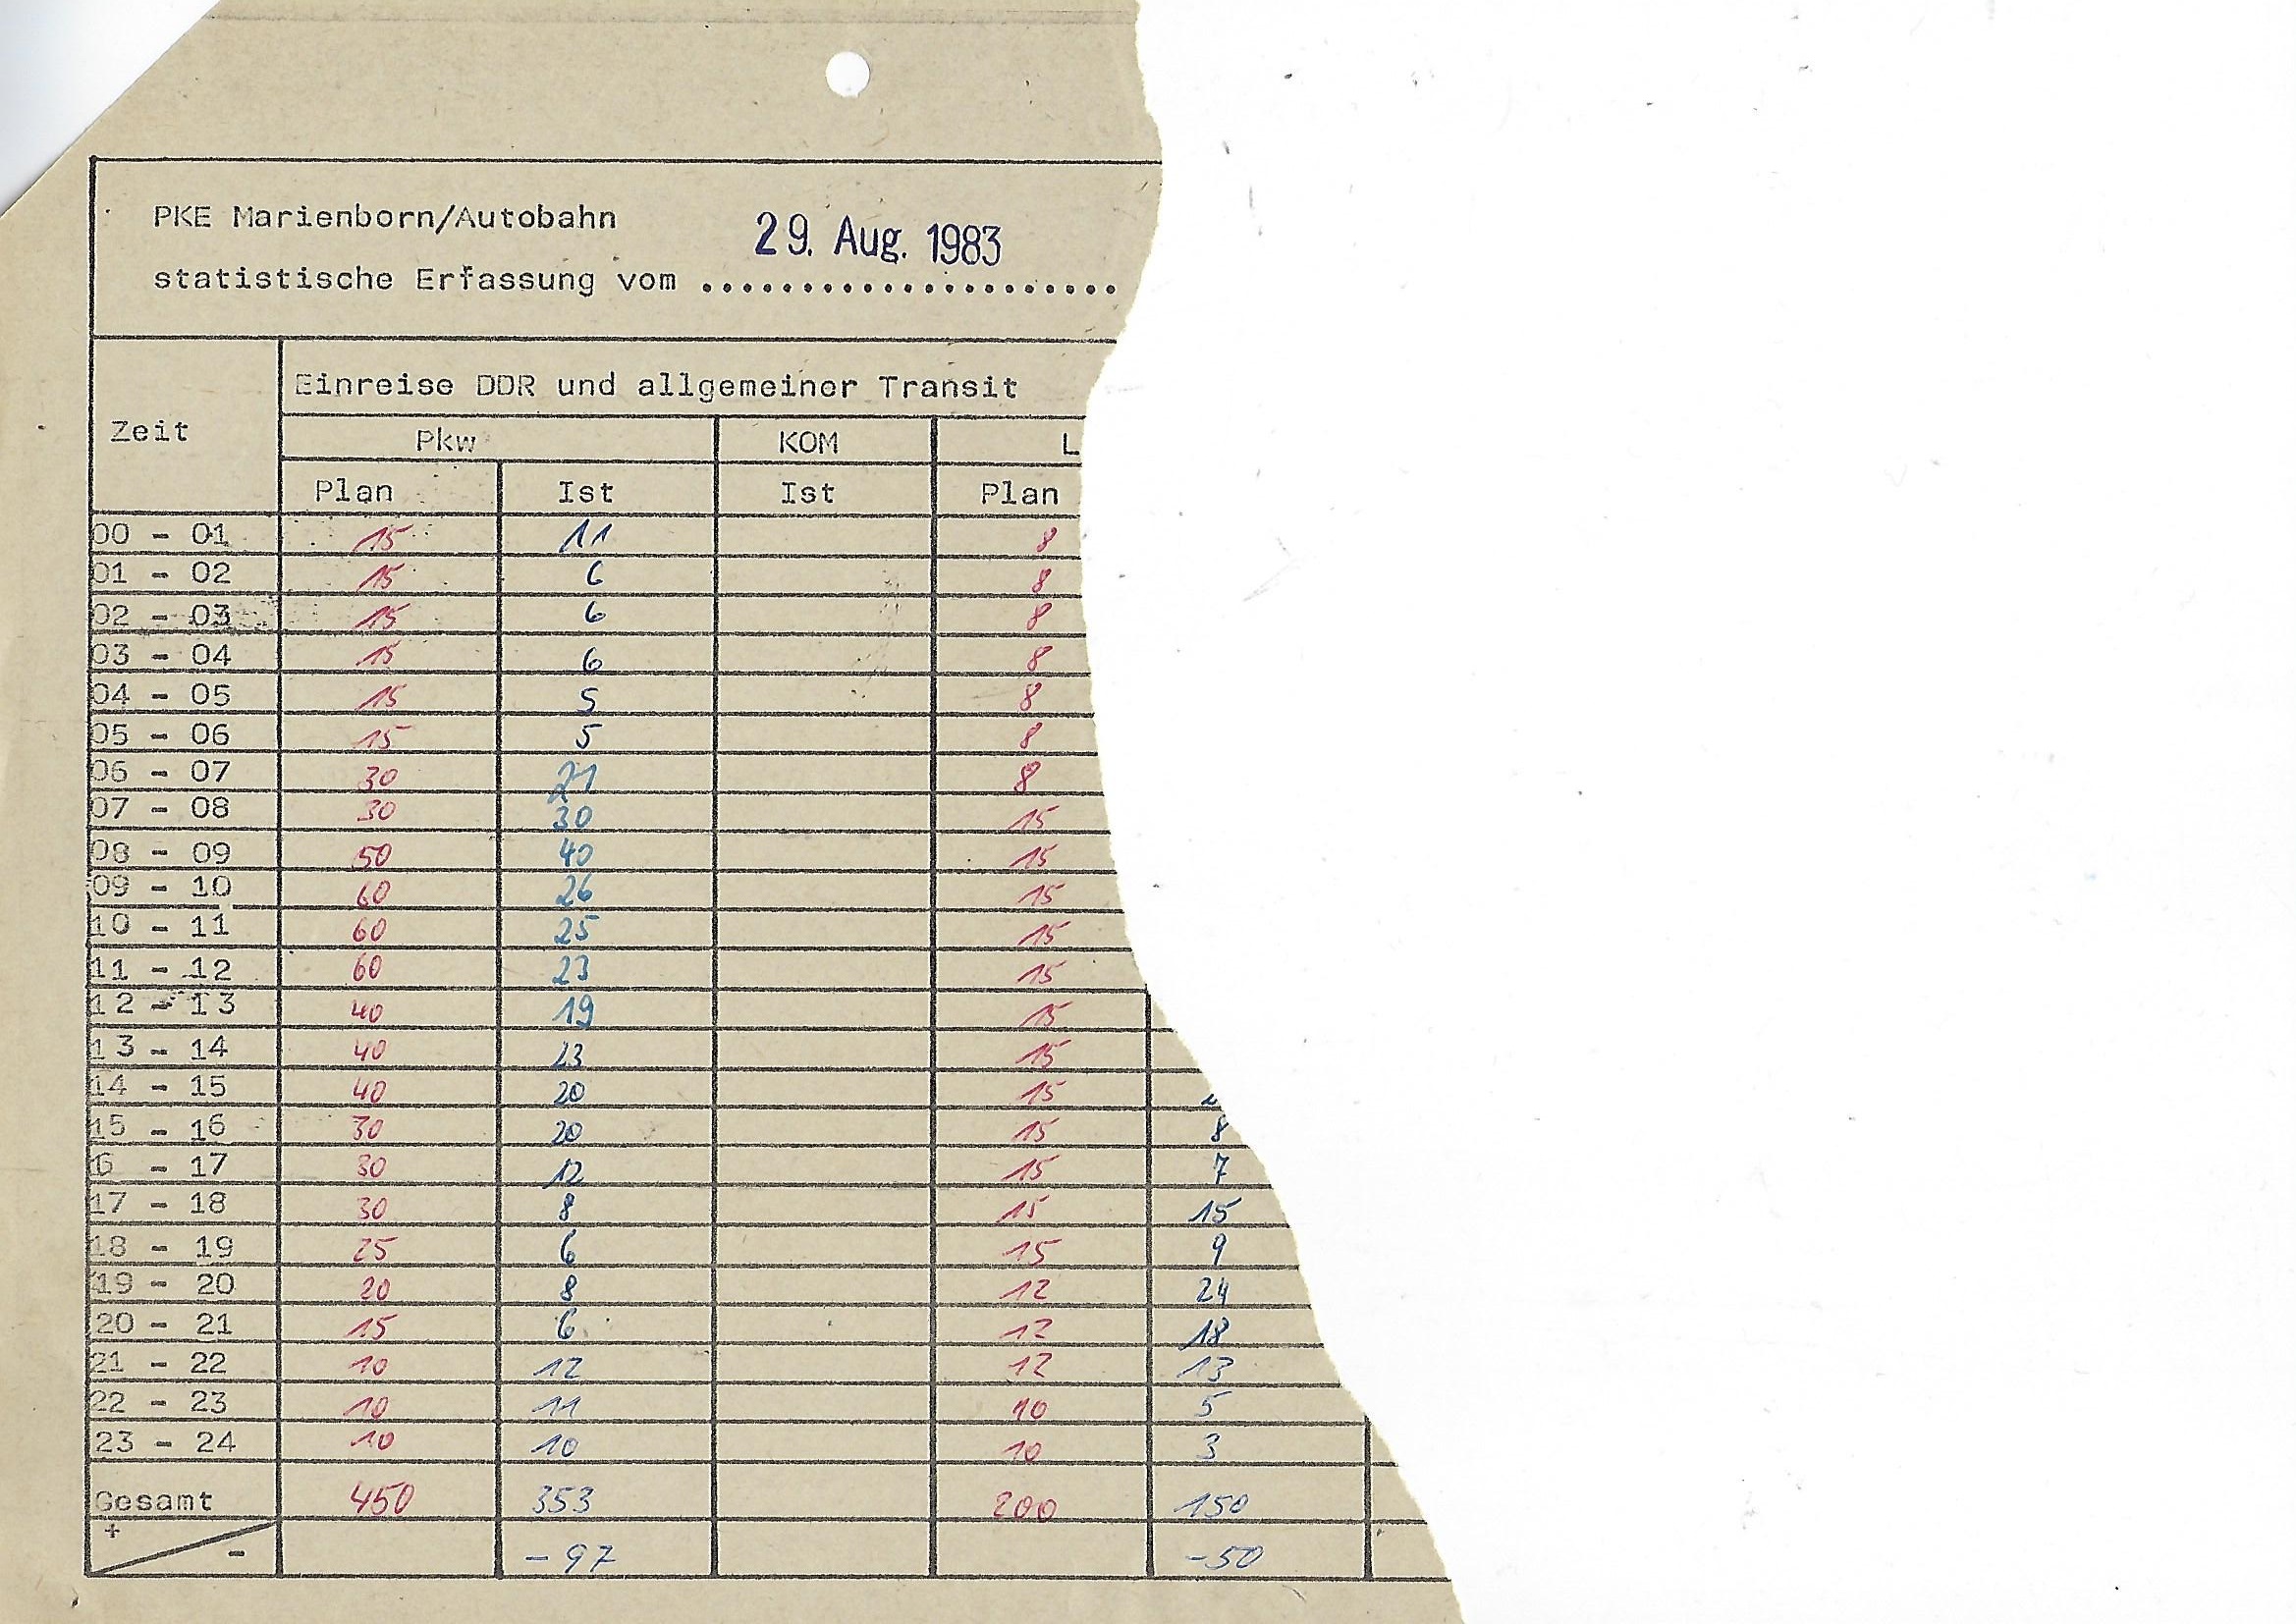 PKE Marienborn/Autobahn
29. Aug. 1983
statistische Erfassung vom .....................
Zeit Einreise DDR und allgemeiner Transit
Pkw KOM L
Plan Ist Ist Plan
00 - 01 15 11 8
01 - 02 15 6 8
02 - 03 15 6 8
03 - 04 15 6 8
04 - 05 15 5 8
05 - 06 15 5 8
06 - 07 30 21 8
07 - 08 30 30 15
08 - 09 50 40 15
09 - 10 60 26 15
10 - 11 60 25 15
11 - 12 60 23 15
12 - 13 40 19 15
13 - 14 40 23 15
14 - 15 40 20 15
15 - 16 30 20 15 8
16 - 17 30 12 15 7
17 - 18 30 8 15 15
18 - 19 25 6 15 9
19 - 20 20 8 12 24
20 - 21 15 6 12 18
21 - 22 10 12 12 13
22 - 23 10 11 10 5
23 - 24 10 10 10 3
Gesamt 450 353 200 150
+ - -97 -50